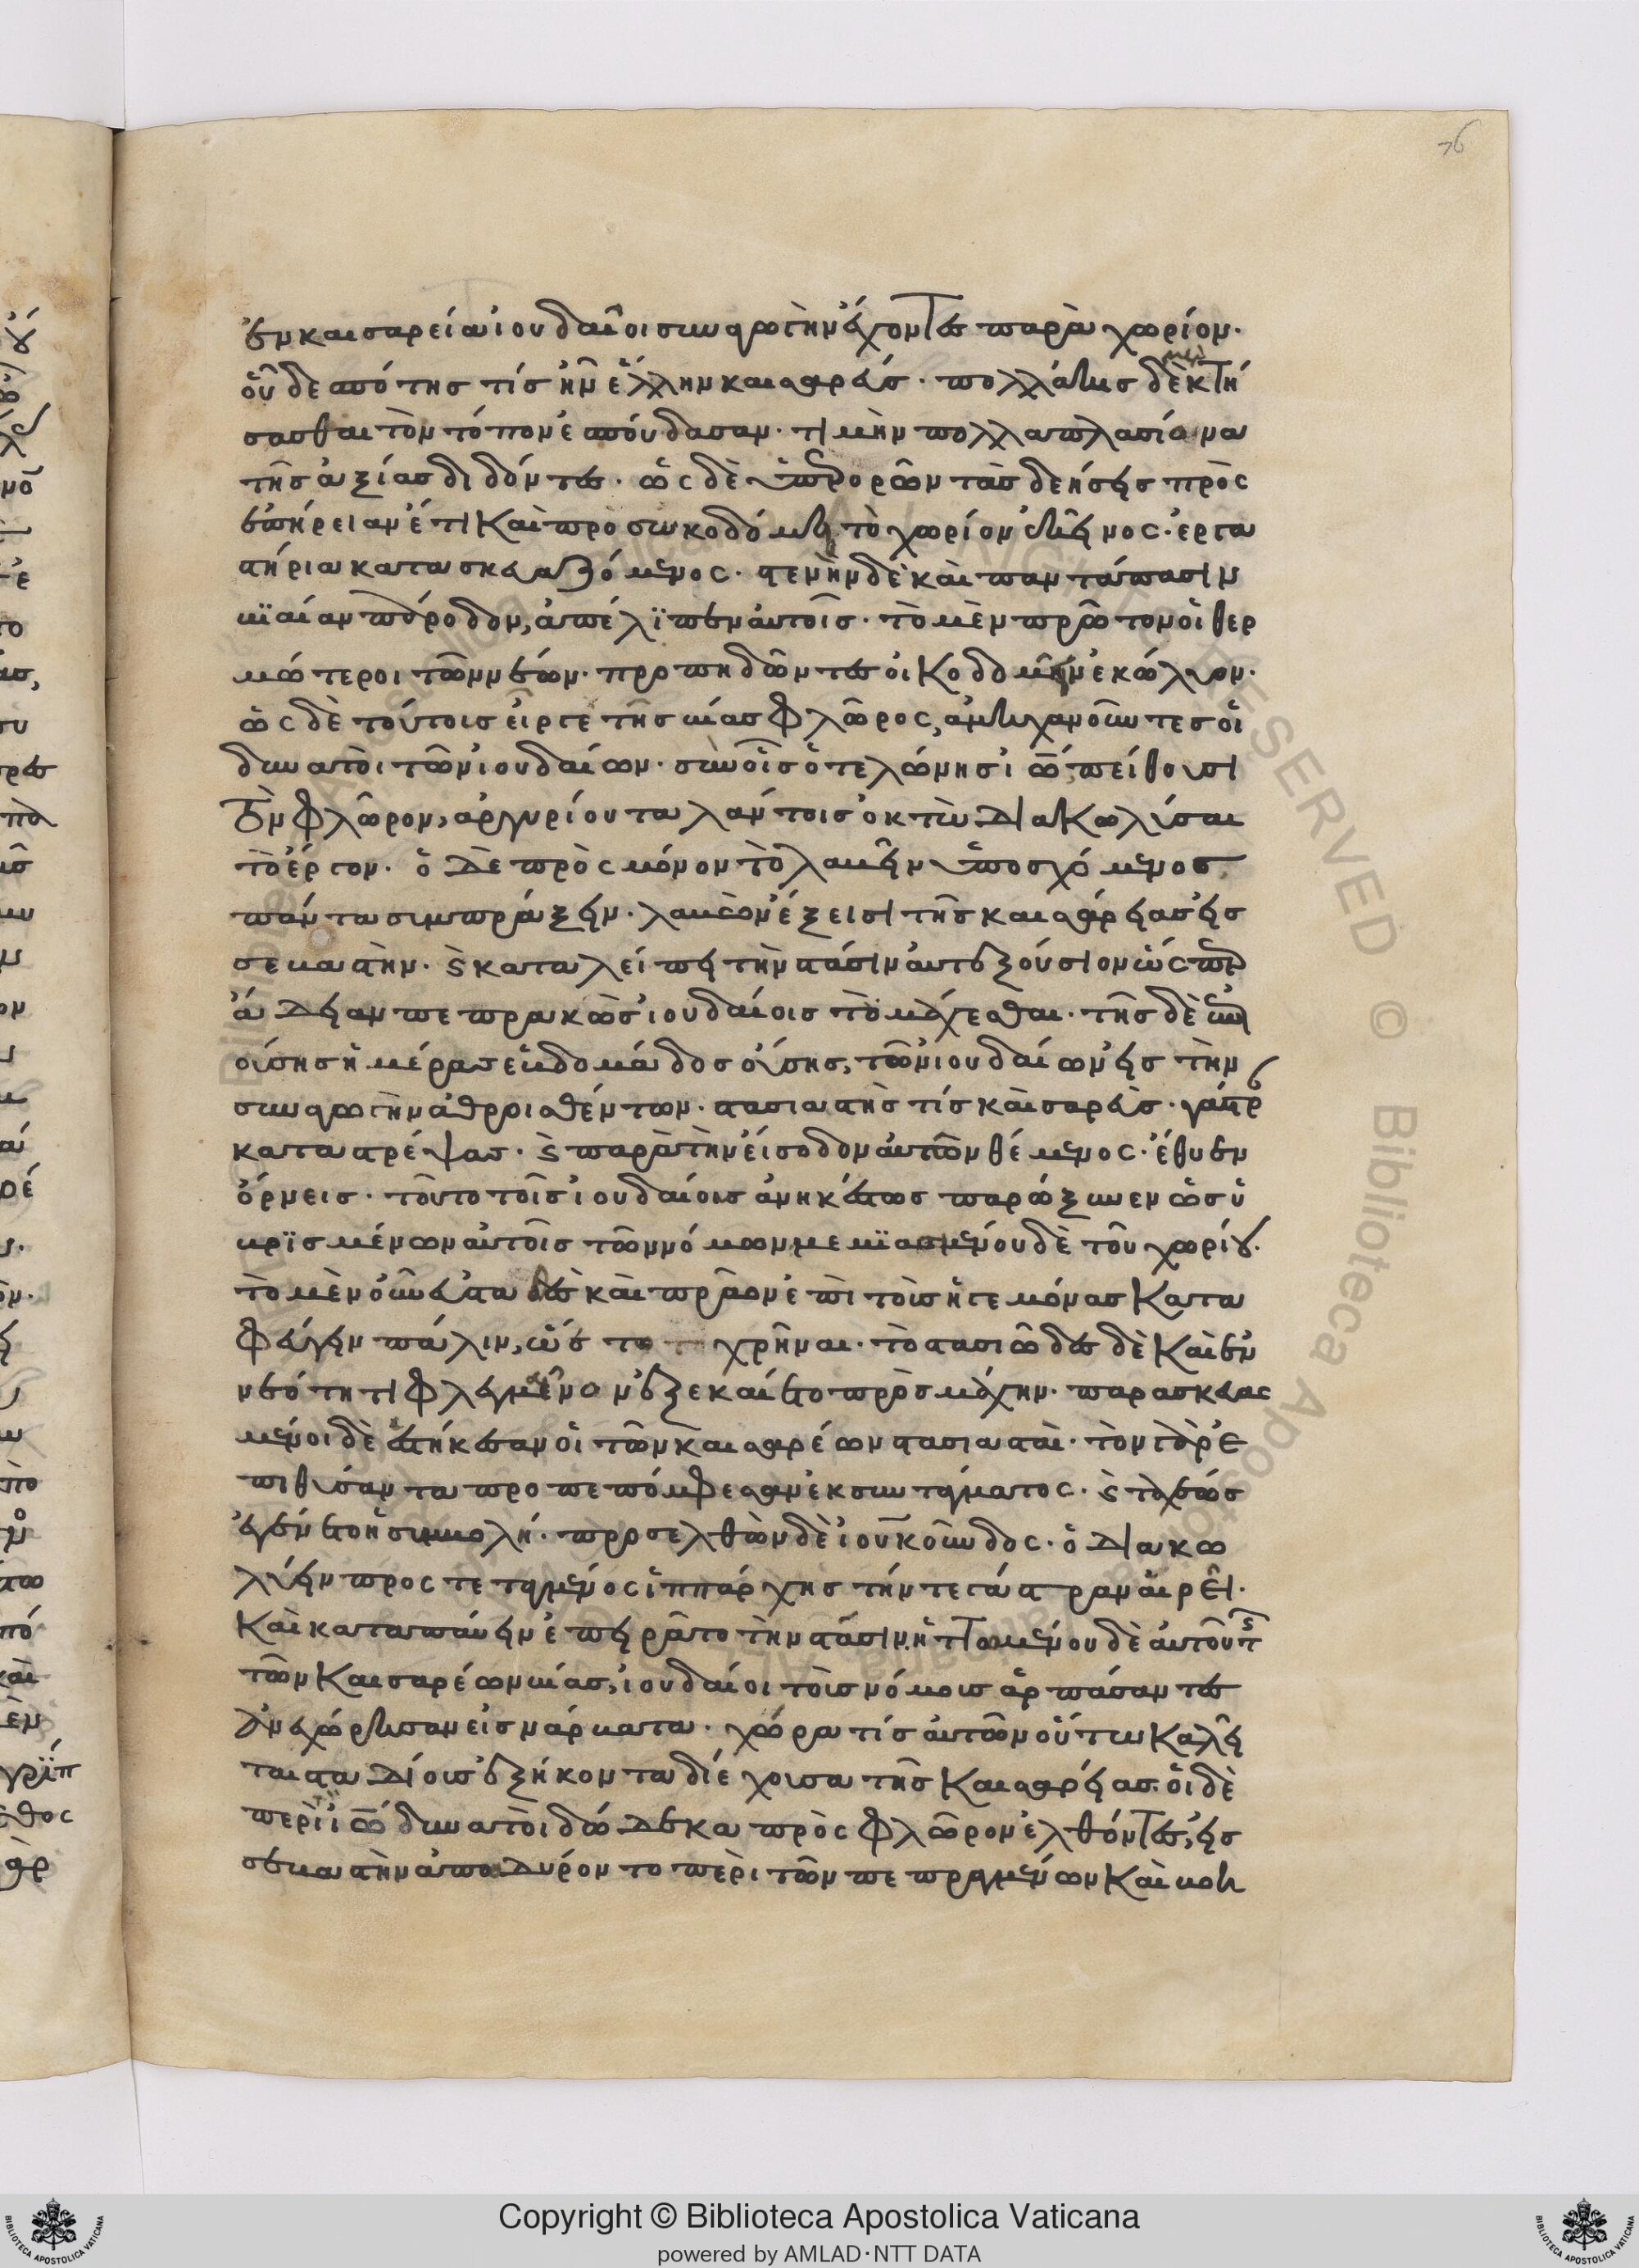 76
ἐν καισαρεία ἰουδαῖοι συναγωγὴν ἔχοντες παρὰ χωρίον·
οὗ δεσπότης τίς ἦν ἕλλην καισαρεύς· πολλάκις μὲν δὲ κτή
σασθαι τὸν τόπον ἐσπούδασαν· τιμὴν πολλαπλασίονα
τῆς ἀξίας διδόντες· ὡς δὲ ὑπερορῶν τὰς δεήσεις πρὸς
ἐπήρειαν ἔτι καὶ προσωκοδόμει τὸ χωρίον ἐκεῖνος· ἐργα
στήρια κατασκευαζόμενος· στενήν δὲ καὶ παντάπασιν
βιαίαν πάροδον, ἀπέλιπεν αὐτοῖς· τὸ μὲν πρῶτον οἱ θερ
μότεροι τῶν νέων· προπηδῶντες οἰκοδομεῖν ἐκώλυον·
ὡς δὲ τούτοις εἶργε τῆς βίας φλῶρος, ἀμηχανοῦντες οἱ
δυνατοὶ τῶν ἰουδαίων· σὺν οἷς ὁ τελώνης ἰω, πείθουσι
τὸν φλῶρον, ἀργυρίου ταλάντοις ὀκτὼ διακωλῦσαι
τὸ ἔργον· ὁ δὲ πρὸς μόνον τὸ λαβεῖν ὑποσχόμενος
πάντα συμπράξειν· λαβὼν ἔξεισι τῆς καισαρείας εἰς
σεβαστήν· καὶ καταλείπει τὴν στάσιν αὐτεξούσιον ὥσπερ
ἄδειαν πεπρακὼς ἰουδαίοις τὸ μάχεσθαι· τῆς δὲ ἐπι
ούσης ἡμέρας ἑβδομάδος οὔσης, τῶν ἰουδαίων εἰς τὴν
συναγωγὴν ἀθροισθέντων· στασιαστής τίς καισαρεύς· γάστραν
καταστρέψας· καὶ παρὰ τὴν εἴσοδον αὐτῶν θέμενος· ἔθυεν
ὄρνεις· τοῦτο τοῖς ἰουδαίοις ἀνηκέστως παρώξυνεν ὡς ὑ
βρισμένων αὐτοῖς τῶν νόμων μεμιασμένου δὲ τοῦ χωρίου.
τὸ μὲν οὖν εὐσταθὲς καὶ πρᾶον ἐπὶ τοὺς ἡγεμόνας κατα
φεύγειν πάλιν, ᾤετο χρῆναι· τὸ στασιῶδες δὲ καὶ ἐν
νεότητι φλεγμαῖνον ἐξεκαίετο πρὸς μάχην· παρασκευας
μένοι δὲ εἱστήκεσαν οἱ τῶν καισαρέων στασιασταί· τὸν γὰρ ἐ
πιθύσαντα προπεπόμφεσαν ἐκ συντάγματος· καὶ ταχέως
ἐγένετο ἡ συμβολή· προσελθὼν δὲ ἰούκουνδος· ὁ διακω
λύειν προστεταγμένος ἱππάρχης τήν τε γάστραν αἴρει·
καὶ καταπαύειν ἐπειρᾶτο τὴν στάσιν· ἡττωμένου δὲ αὐτοῦ τῆς
τῶν καισαρέων βίας, ἰουδαῖοι τοὺς νόμους ἁρπάσαντες
ἀνεχώρησαν εἰς νάρβατα· χώρα τίς αὐτῶν οὕτω καλεῖ
ται σταδίους ἑξήκοντα διέχουσα τῆς καισαρείας· οἱ δὲ
περὶ ἰω δυνατοὶ δώδεκα πρὸς φλῶρον ἐλθόντες, εἰς
σεβαστὴν ἀπωδύροντο περὶ τῶν πεπραγμένων καὶ βοη
Copyright © Biblioteca Apostolica Vaticana
powered by AMLAD·NTT DATA